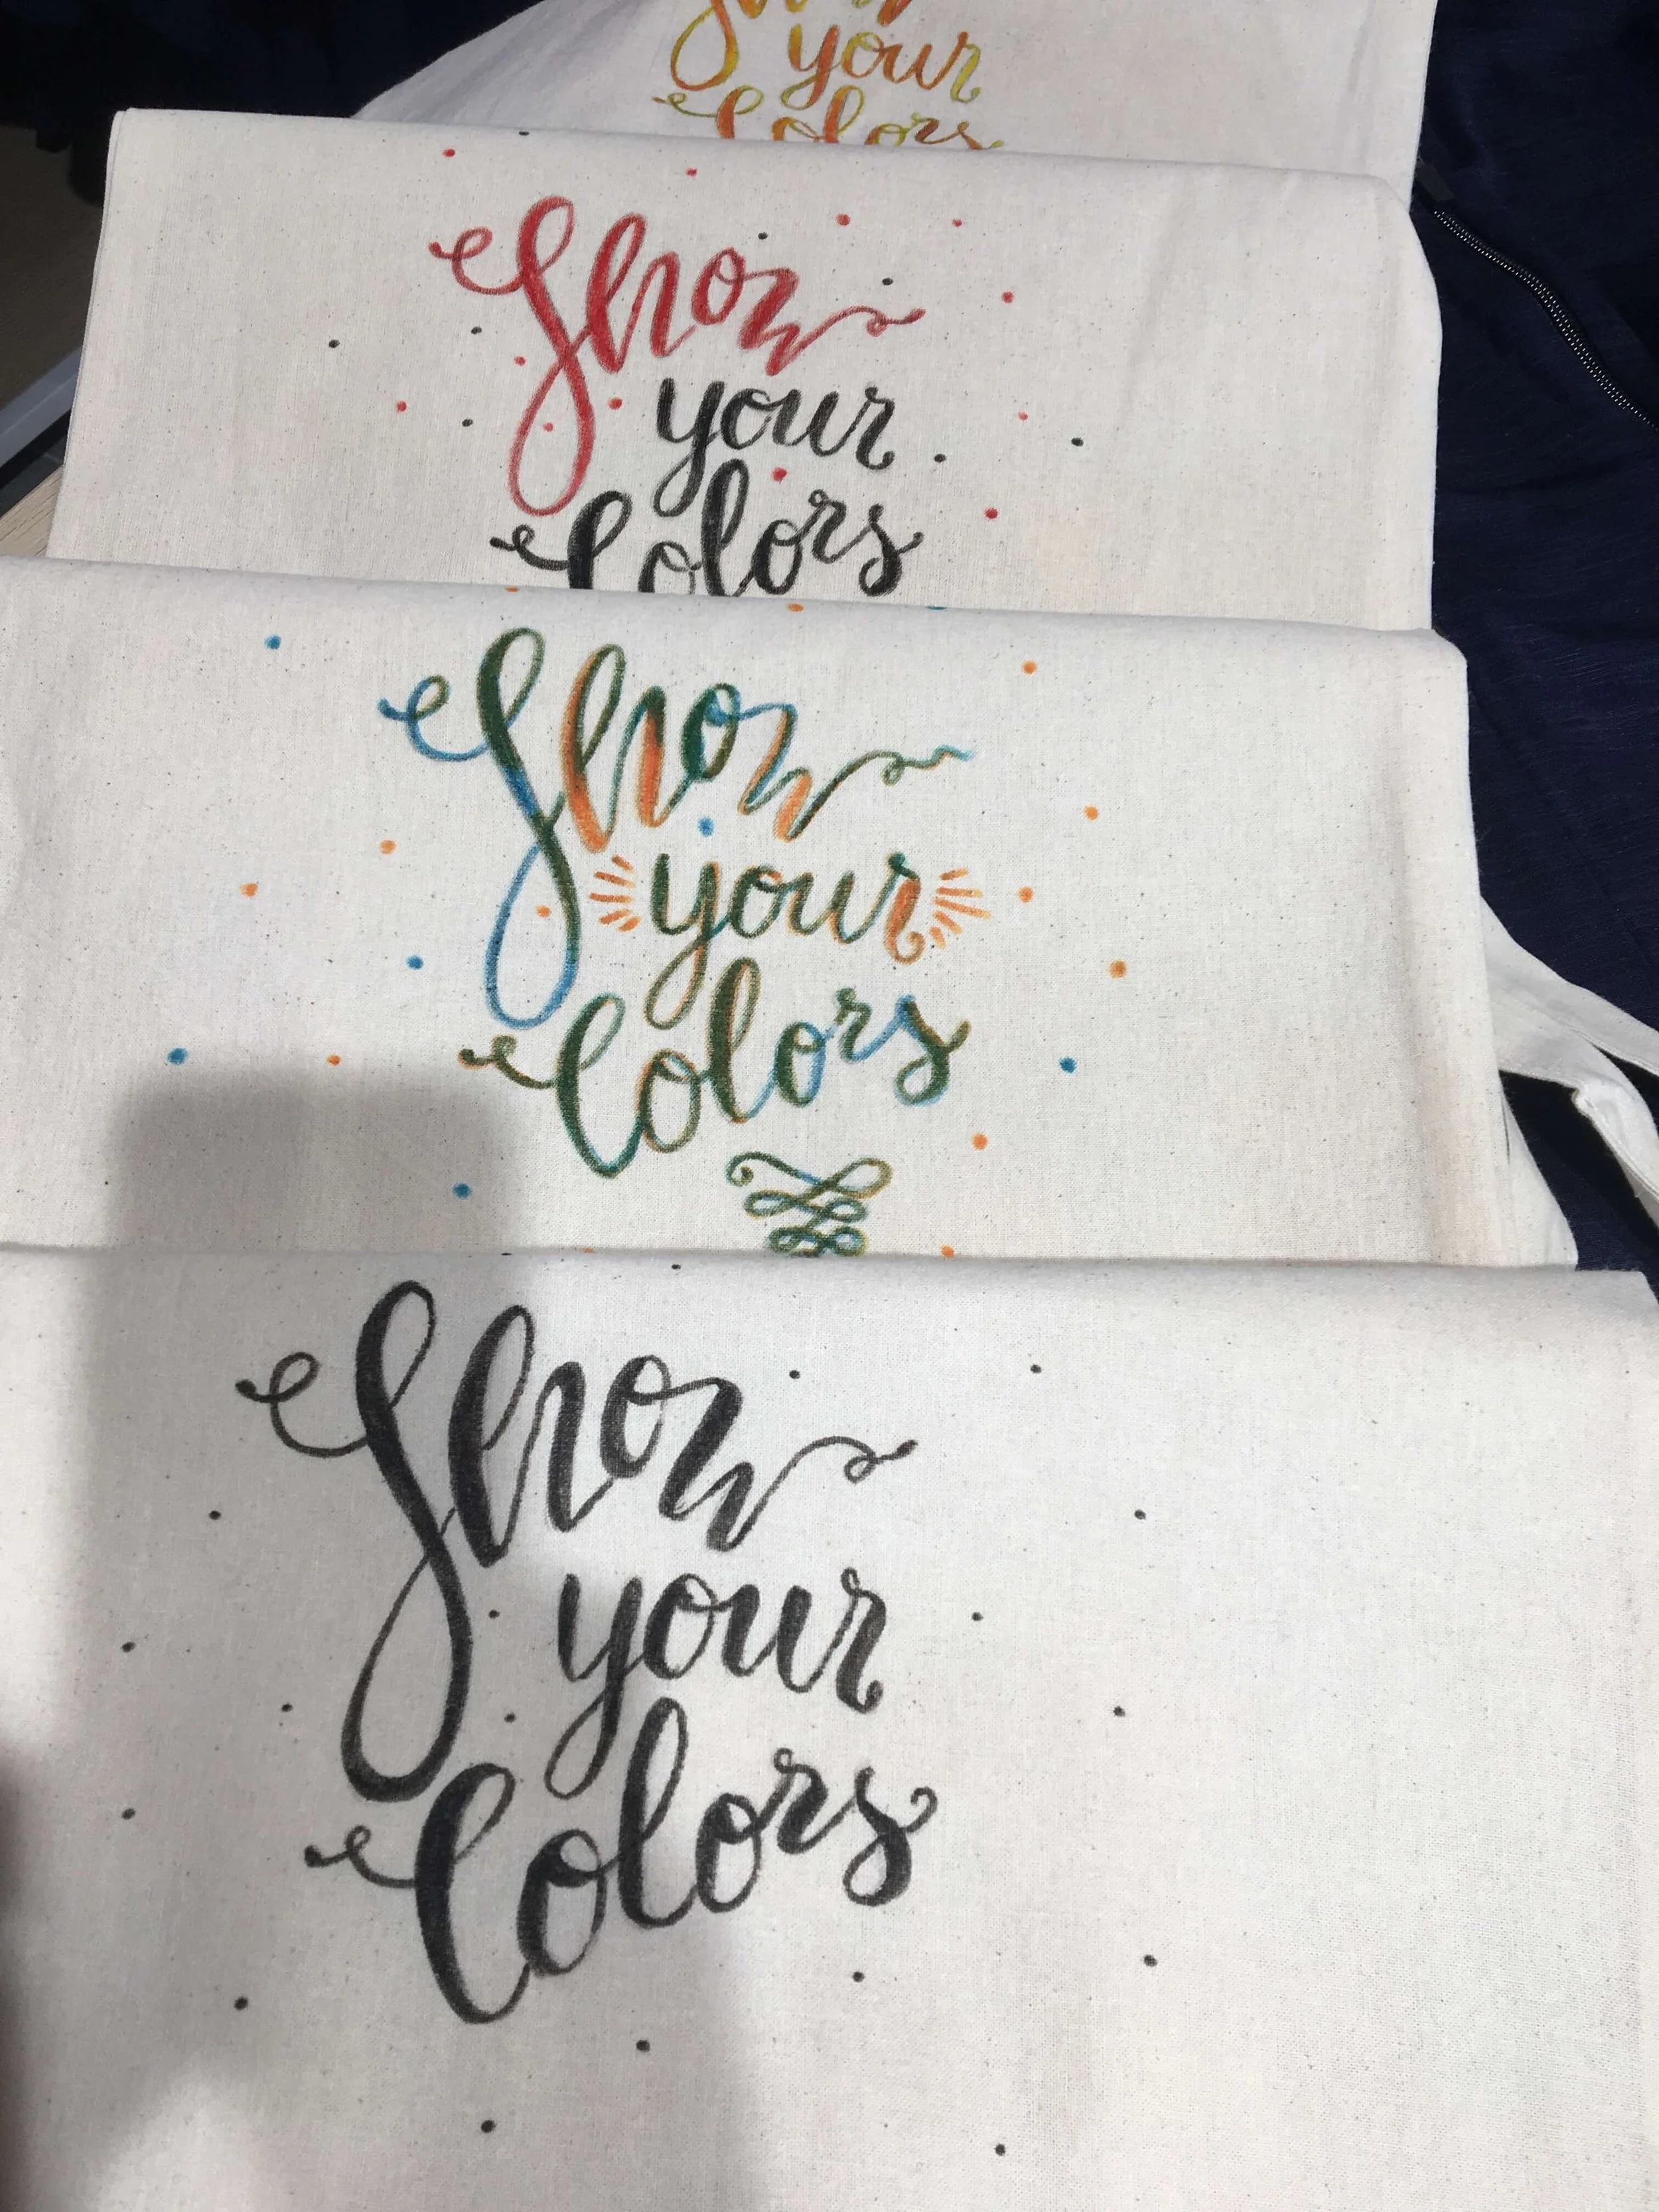 Show
your
Colors
Show
your
Colors
Show
your
Colors
Show
your
Colors